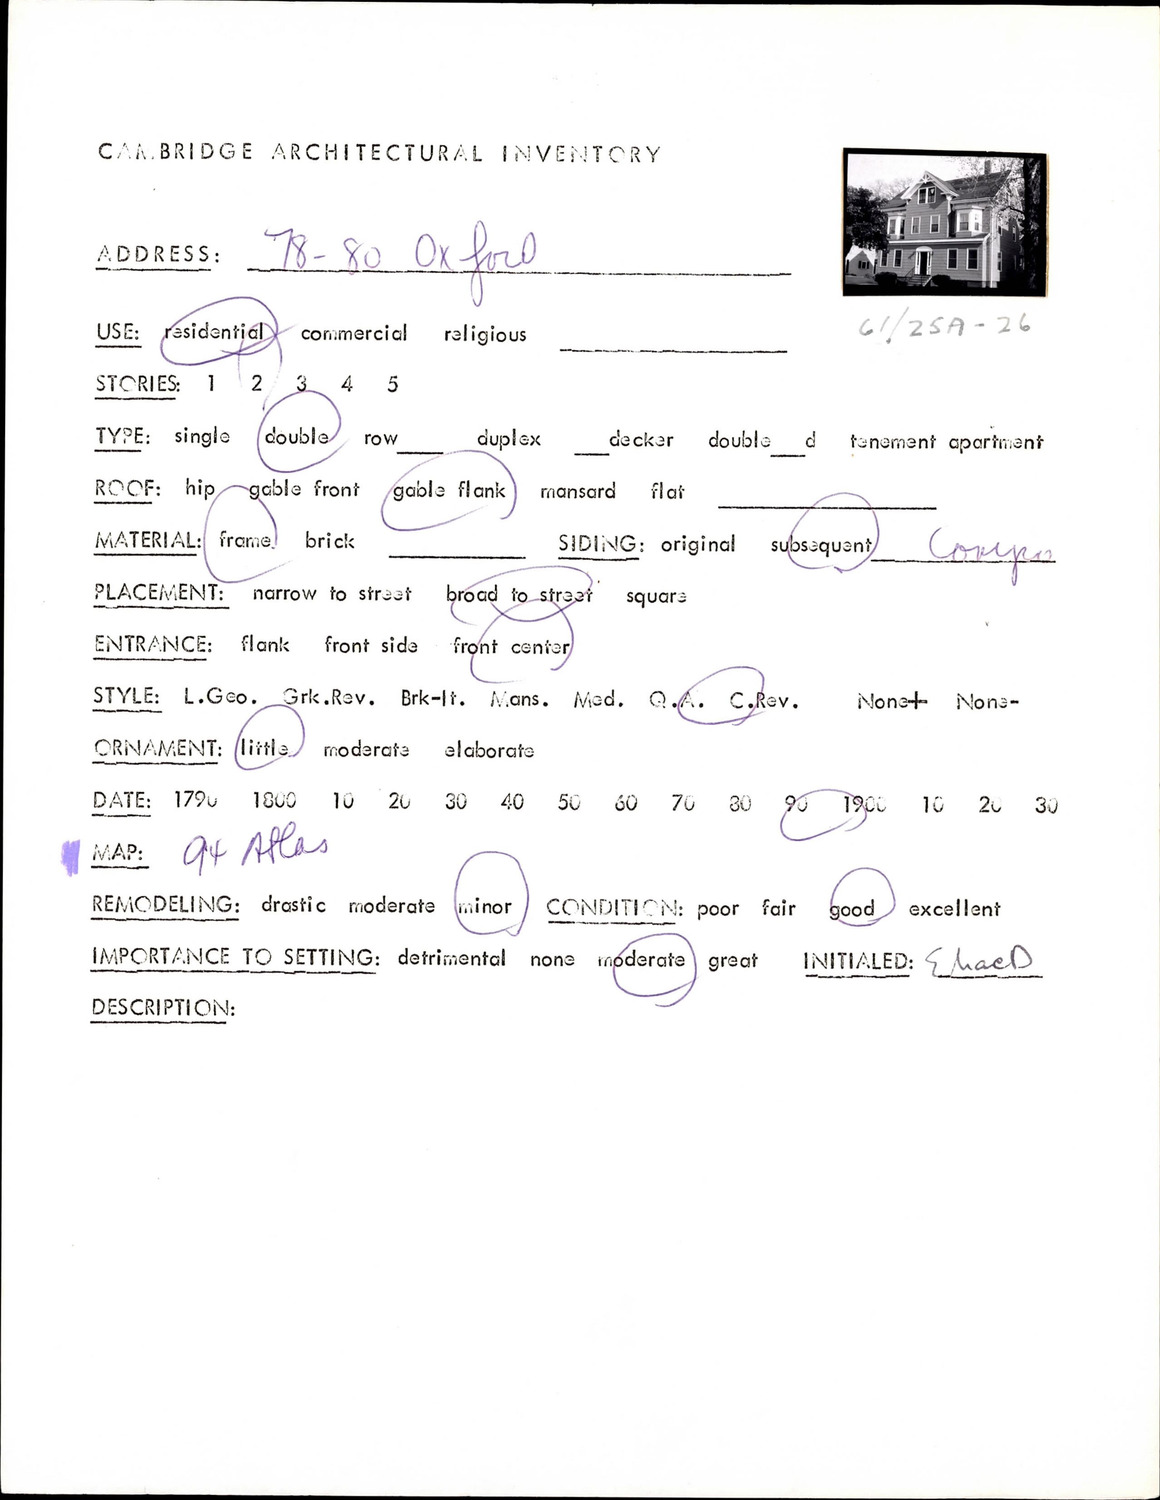 CAMBRIDGE ARCHITECTURAL INVENTORY
ADDRESS: 78-80 Oxford
61/25A-26
USE: residential commercial religious
STORIES: 1 2 3 4 5
TYPE: single double row___ duplex ___decker double___d tenement apartment
ROOF: hip gable front gable flank mansard flat
MATERIAL: frame brick SIDING: original subsequent Compo
PLACEMENT: narrow to street broad to street square
ENTRANCE: flank front side front center
STYLE: L.Geo. Grk.Rev. Brk-It. Mans. Med. Q.A. C.Rev. None+ None-
ORNAMENT: little moderate elaborate
DATE: 1790 1800 10 20 30 40 50 60 70 80 90 1900 10 20 30
MAP: 94 Atlas
REMODELING: drastic moderate minor CONDITION: poor fair good excellent
IMPORTANCE TO SETTING: detrimental none moderate great INITIALED: EMacD
DESCRIPTION: